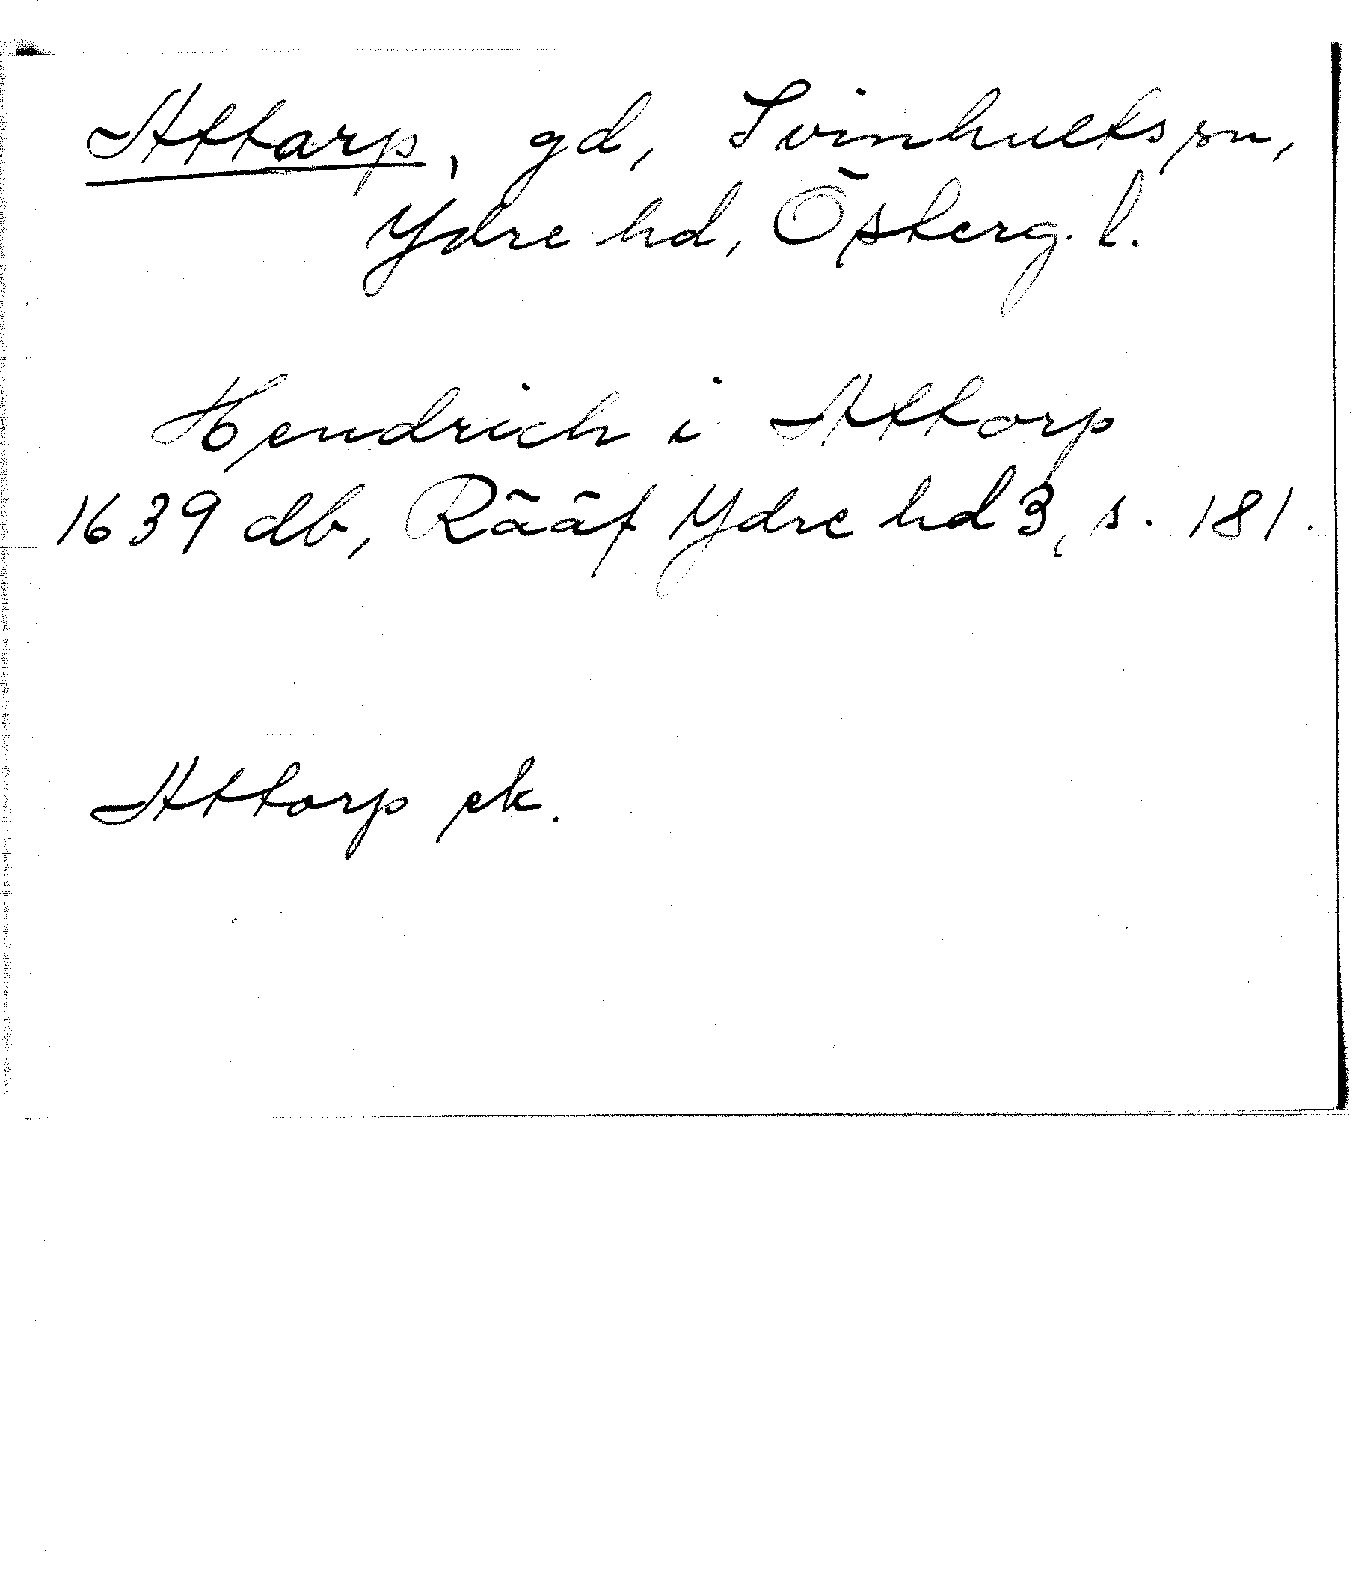 Attarp, gd, Svinhults sn,
Ydre hd, Österg. l.
Hendrich i Attorp
1639 db, Rääf Ydre hd 3, s. 181.
Attorp ek.